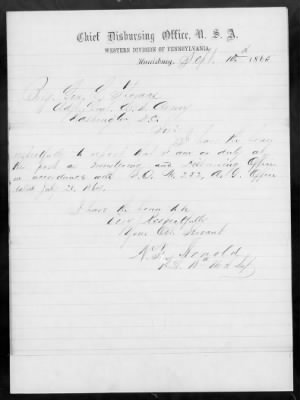 Chief Disbursing Office, U. S. A.
WESTERN DIVISION OF PENNSYLVANIA,
Harrisburg, Sept. 186
Brig. Gen. L. Thomas
Adjt. Genl. U.S. Army
Washington D.C.
Sir
I have the
respectfully to report that I am on duty at
this post as Mustering and Disbursing Officer
in accordance with S.O. No. 252, A. G. Office
dated July
I have the honor to be
Very Respectfully
Your Obt. Servant